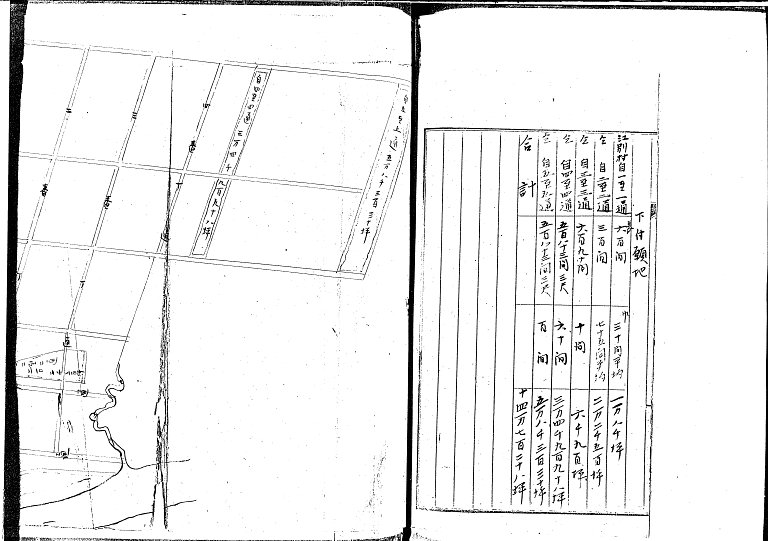 下付願地
江別村自一至一通 長六百間 巾三十間平均 一万八千坪
仝 自二至二通 三百間 七十五間平均 二万二千五百坪
仝 自三至三通 六百九十間 十間 六千九百坪
仝 自四至四通 五百八十三間三尺 六十間 三万四千九百九十八坪
仝 自五至五通 五百八十三間三尺 百間 五万八千三百三十坪
合計 十四万七百二十八坪
五万八千三百三十坪
自四至四通 三万四千九百九十八坪
四番丁通
三番丁
二番丁